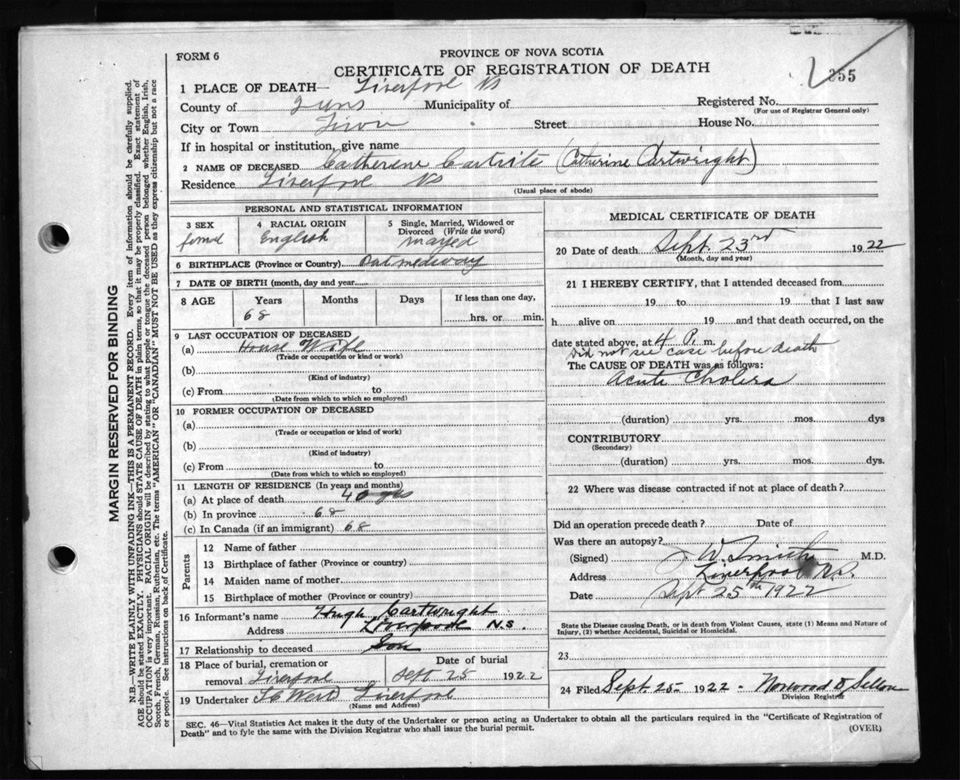 FORM 6
PROVINCE OF NOVA SCOTIA
CERTIFICATE OF REGISTRATION OF DEATH
355
1 PLACE OF DEATH— Liverpool NS
County of Municipality of Registered No.
(For use of Registrar General only)
City or Town Street House No.
If in hospital or institution, give name
2 NAME OF DECEASED Catherene Cartrite (Catherine Cartwright)
Residence Liverpool NS
(Usual place of abode)
PERSONAL AND STATISTICAL INFORMATION
3 SEX 4 RACIAL ORIGIN 5 Single, Married, Widowed or Divorced (Write the word)
femal English mayed
6 BIRTHPLACE (Province or Country)
7 DATE OF BIRTH (month, day and year
8 AGE Years Months Days If less than one day,
68 hrs. or min.
9 LAST OCCUPATION OF DECEASED
(a) House Wife
(Trade or occupation or kind or work)
(b)
(Kind of industry)
(c) From to
(Date from which to which so employed)
10 FORMER OCCUPATION OF DECEASED
(a)
(Trade or occupation or kind of work)
(b)
(Kind of industry)
(c) From to
(Date from which to which so employed)
11 LENGTH OF RESIDENCE (In years and months)
(a) At place of death 40 yrs
(b) In province 68
(c) In Canada (if an immigrant) 68
Parents
12 Name of father
13 Birthplace of father (Province or country)
14 Maiden name of mother
15 Birthplace of mother (Province or country)
16 Informant's name Hugh Cartwright
Address Liverpool N.S.
17 Relationship to deceased Son
18 Place of burial, cremation or removal Liverpool Date of burial Sept 25 1922
19 Undertaker Liverpool
(Name and Address)
MEDICAL CERTIFICATE OF DEATH
20 Date of death Sept. 23rd 1922
(Month, day and year)
21 I HEREBY CERTIFY, that I attended deceased from
19 to 19 that I last saw
h alive on 19 and that death occurred, on the
date stated above, at 4 P. m.
Did not see case before death
The CAUSE OF DEATH was as follows:
Acute Cholera
(duration) yrs. mos. dys
CONTRIBUTORY
(Secondary)
(duration) yrs. mos. dys.
22 Where was disease contracted if not at place of death?
Did an operation precede death? Date of
Was there an autopsy?
(Signed) J W Smith M.D.
Address Liverpool N.S.
Date Sept 25th 1922
State the Disease causing Death, or in death from Violent Causes, state (1) Means and Nature of Injury, (2) whether Accidental, Suicidal or Homicidal.
23
24 Filed Sept. 25 1922
Division Registrar
SEC. 46—Vital Statistics Act makes it the duty of the Undertaker or person acting as Undertaker to obtain all the particulars required in the "Certificate of Registration of
Death" and to fyle the same with the Division Registrar who shall issue the burial permit. (OVER)
MARGIN RESERVED FOR BINDING
N.B.—WRITE PLAINLY WITH UNFADING INK—THIS IS A PERMANENT RECORD. Every item of information should be carefully supplied.
AGE should be stated EXACTLY. PHYSICIANS should STATE CAUSE OF DEATH in plain terms, so that it may be properly classified. Exact statement of
OCCUPATION is very important. RACIAL ORIGIN will be described by stating to what people or tongue the deceased person belonged whether English, Irish,
Scotch, French, German, Russian, Ruthenian, etc. The terms "AMERICAN" OR "CANADIAN" MUST NOT BE USED as they express citizenship but not a race
or people. See instructions on back of Certificate.